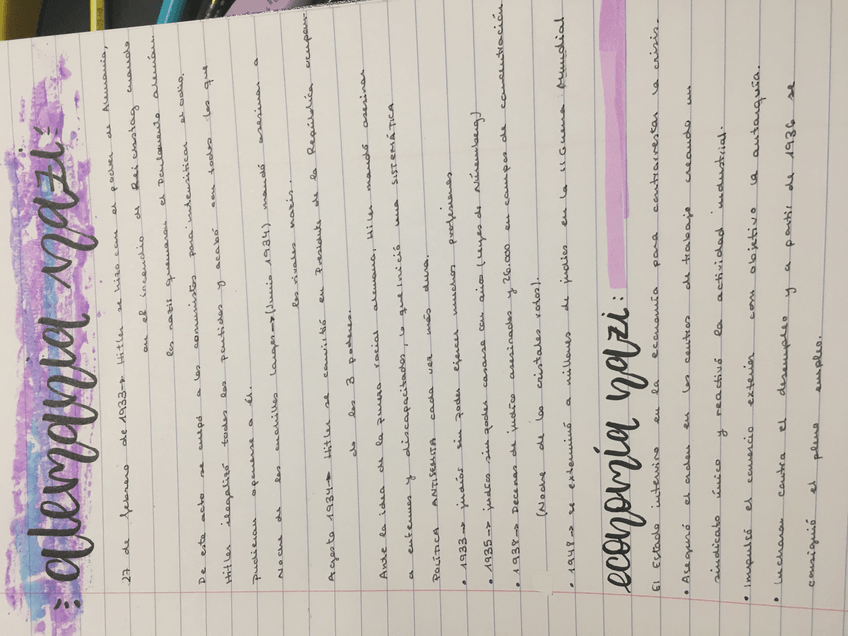 :: alemania nazi:
27 de febrero de 1933→ Hitler se hizo con el poder de Alemania,
en el incendio de Reichstag cuando
los nazis quemaron el Parlamento alemán.
De este acto se culpó a los comunistas para intensificar el odio.
Hitler ilegalizó todos los partidos y acabó con todos los que
pudieran oponerse a él.
Noche de los cuchillos largos→(Junio 1934) mandó asesinar a
los rivales nazis.
Agosto 1934→ Hitler se convirtió en Presidente de la República ocupan-
do los 3 poderes.
Ante la idea de la pureza racial alemana, Hitler mandó asesinar
a enfermos y discapacitados, lo que inició una SISTEMÁTICA
POLÍTICA ANTISEMITA cada vez más dura.
• 1933→ judíos sin poder ejercer muchas profesiones
• 1935→ judíos sin poder casarse con arios (Leyes de Núremberg)
• 1938→ Decenas de judíos asesinados y 26.000 en campos de concentración
(Noche de los cristales rotos).
• 1948→ se exterminó a millones de judíos en la II Guerra Mundial
economía nazi:
El Estado intervino en la economía para contrarrestar la crisis.
• Aseguró el orden en los centros de trabajo creando un
sindicato único y reactivó la actividad industrial.
• Impulsó el comercio exterior con objetivo la autarquía.
• Lucharon contra el desempleo y a partir de 1936 se
consiguió el pleno empleo.